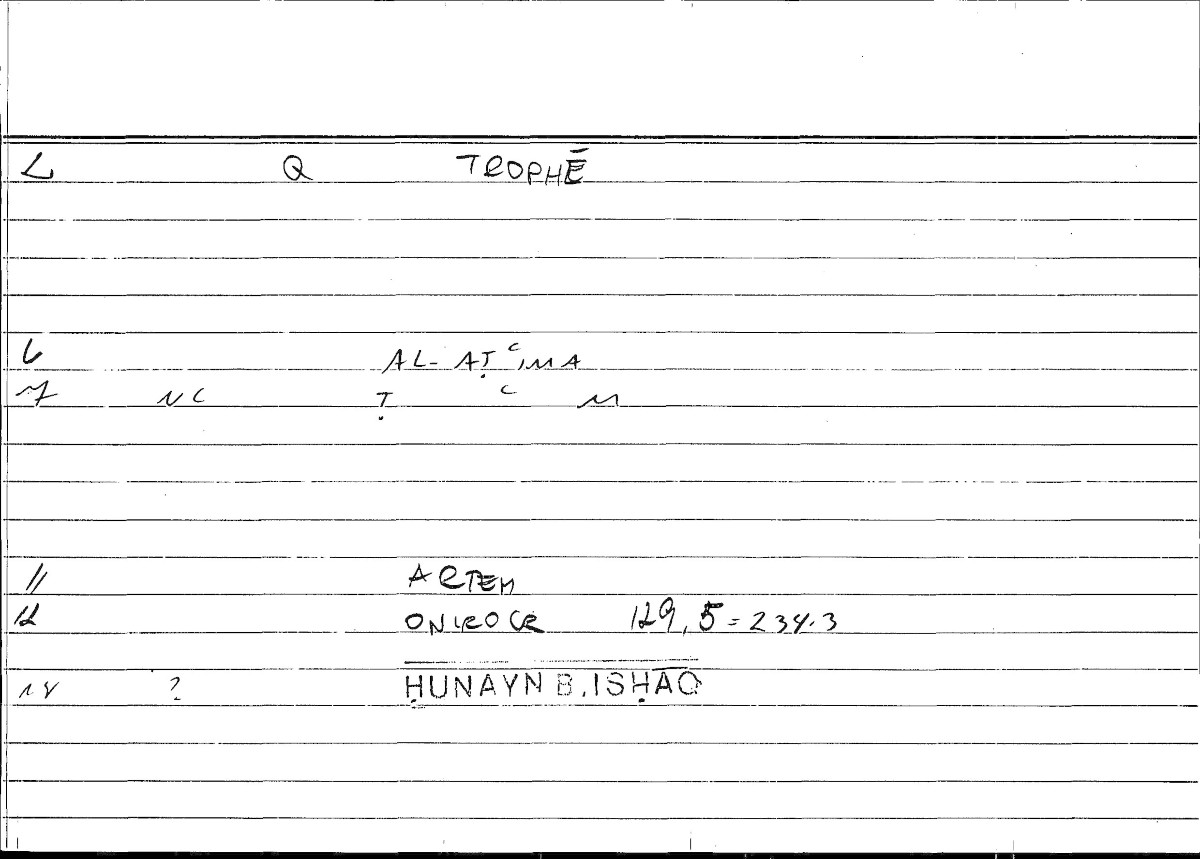 2 Q TROPHĒ
6 AL-AṬʿIMA
7 NC Ṭ ʿ M
11 ARTEM
12 ONIROCR 129,5=234.3
14 ? ḤUNAYN B. ISḤĀQ